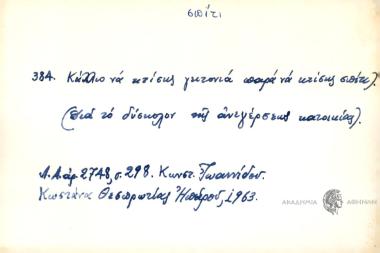 σπίτι
384. Κάλλιο νά κτίσης γειτονιά παρά νά κτίσης σπίτι).
(Διά τό δύσκολον τῆς ἀνεγέρσεως κατοικίας).
Λ.Α. ἀρ. 2748, σ. 298. Κωνστ. Ἰωαννίδου.
Κωστάνα Θεσπρωτίας Ἠπείρου, 1963.
ΑΚΑΔΗΜΙΑ ΑΘΗΝΩΝ